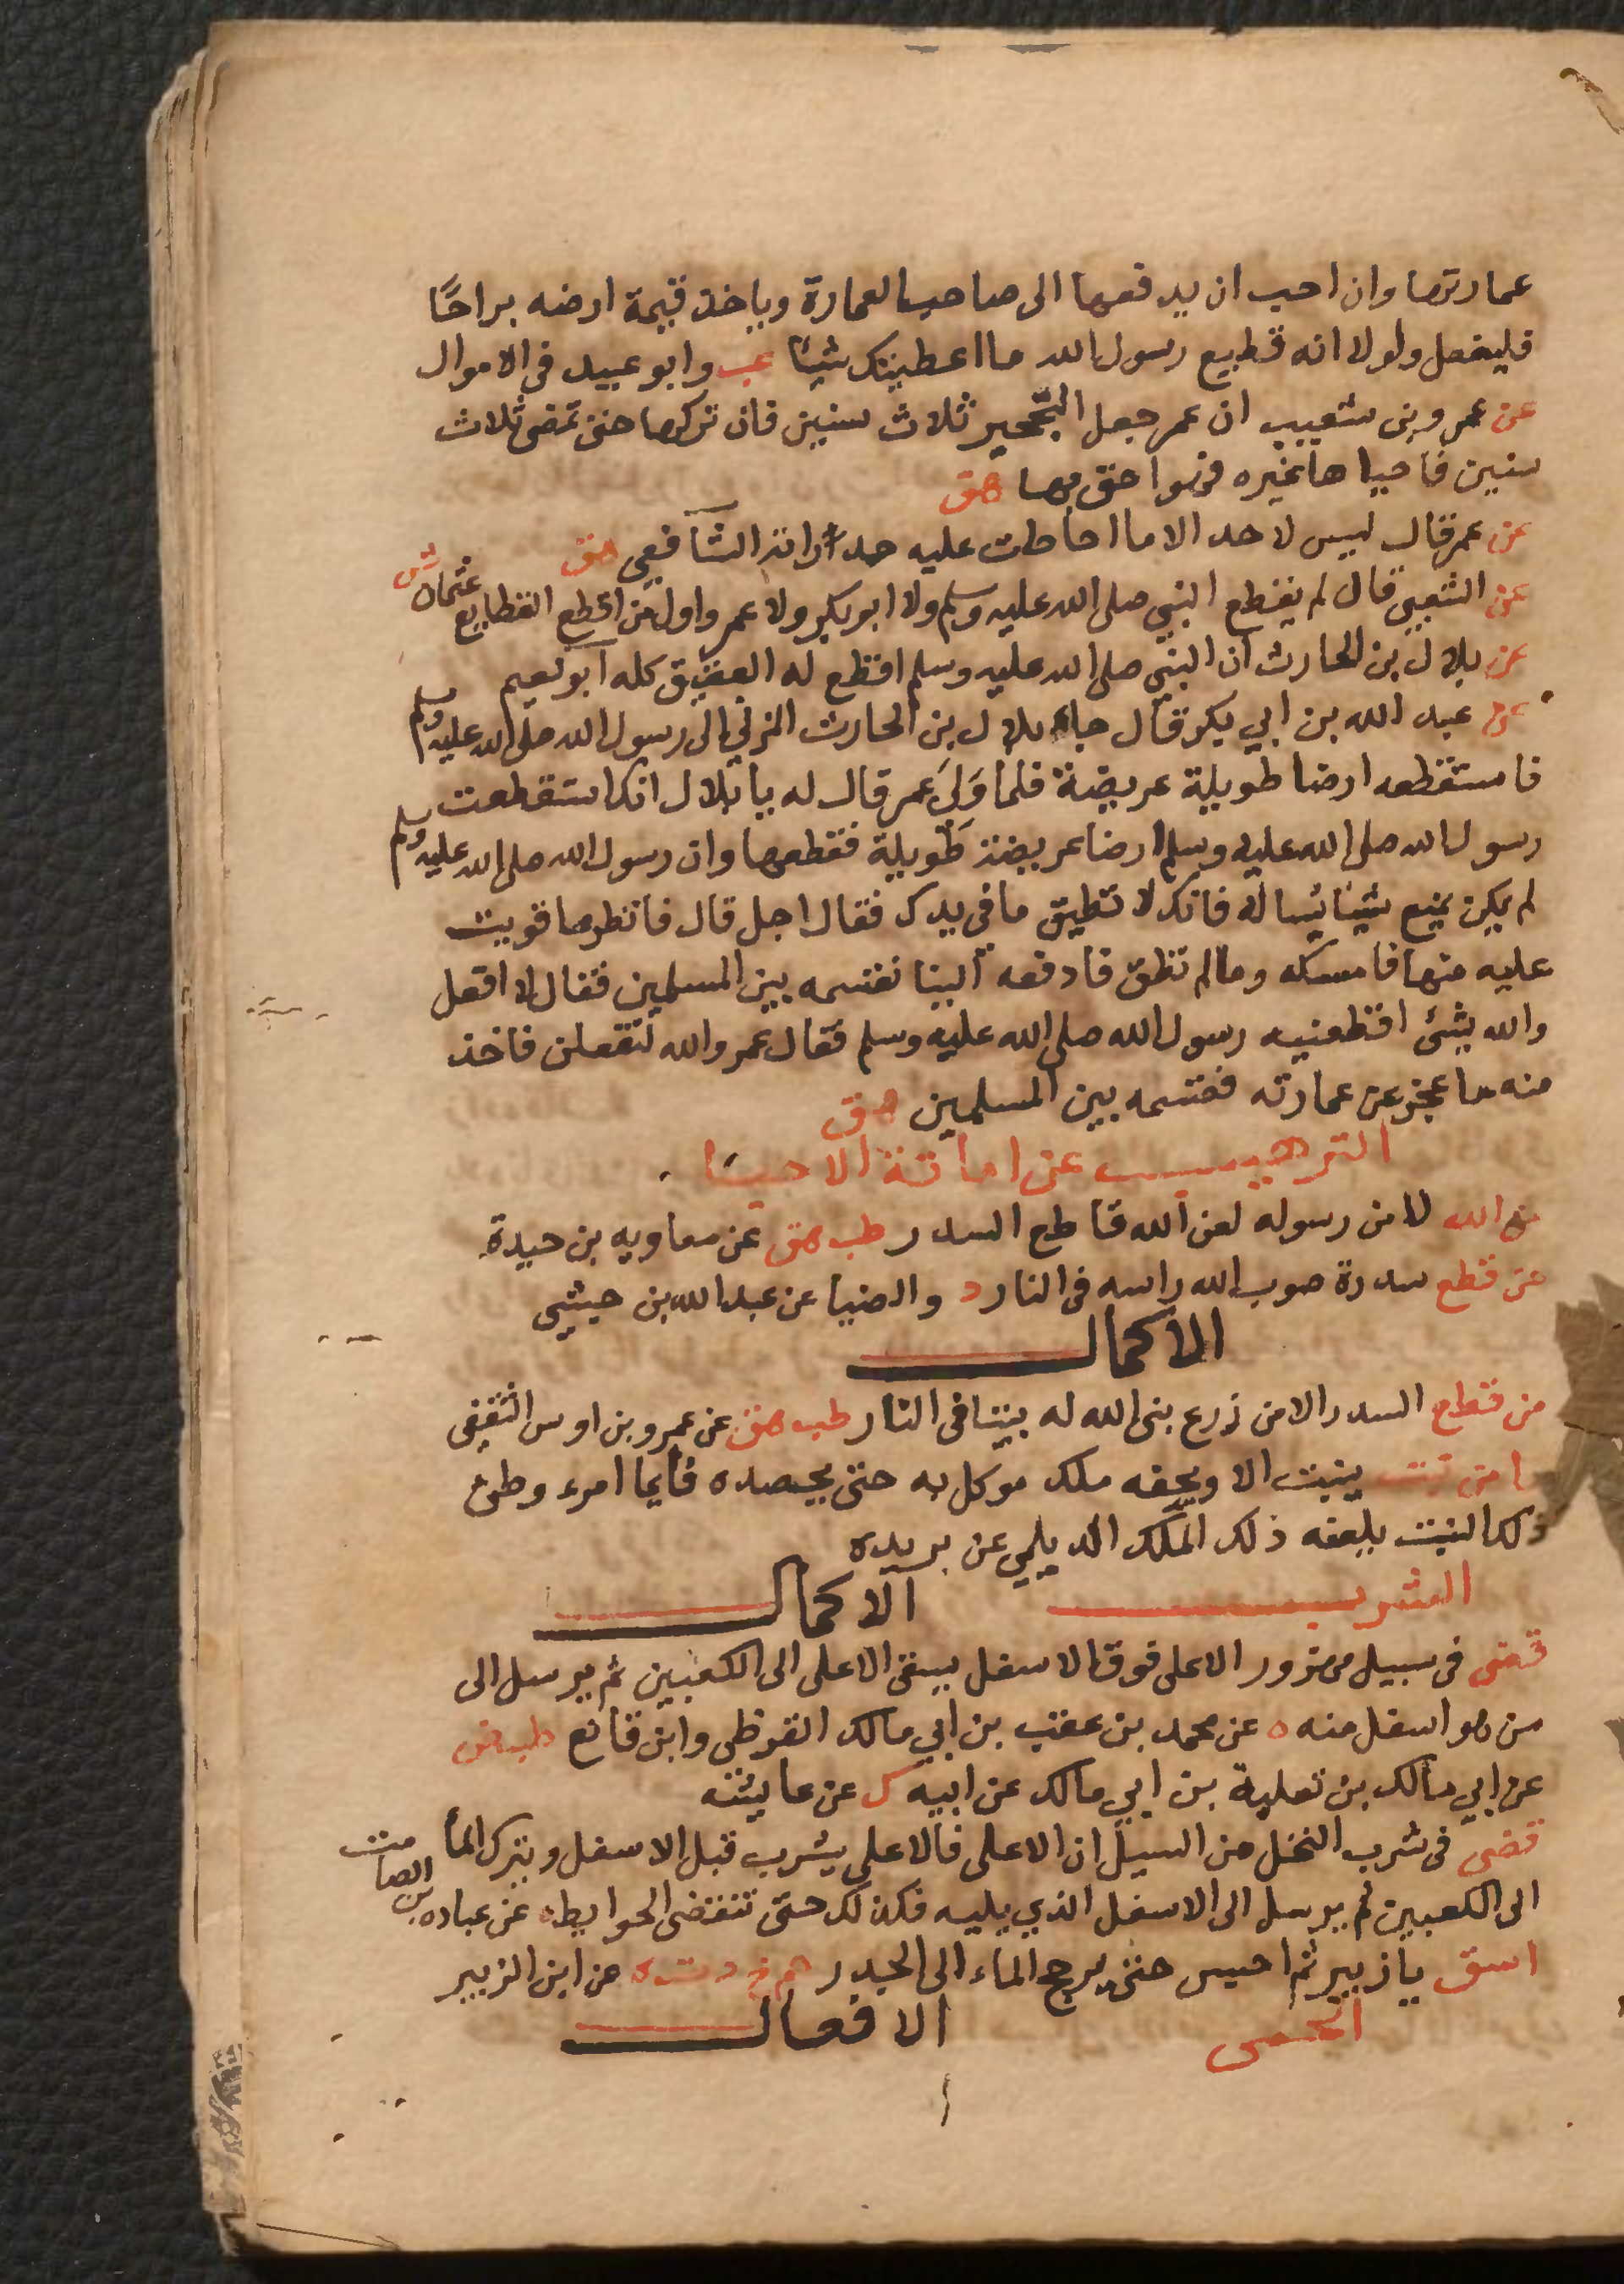 عمارتها وان احب ان يدفعها الى صاحب العمارة وياخذ قيمة ارضه براحًا
فليفعل ولولا انه قطيع رسول الله ما اعطيتك شيئا عب وابو عبيد فى الاموال
عن عمرو بن شعيب ان عمر جعل التحجير ثلاث سنين فان تركها حتى تمضى ثلاث
سنين فاحياها غيره فهو احق بها هق
عن عمر قال ليس لاحد الا ما احاطت عليه جدرانه الشافعي هق
عن الشعبي قال لم يقطع النبي صلى الله عليه وسلم ولا ابو بكر ولا عمر واول من اقطع القطايع عثمان ش
عن بلال بن الحارث ان النبي صلى الله عليه وسلم اقطع له العقيق كله ابو نعيم
عن عبد الله بن ابي بكر قال جاء بلال بن الحارث المزني الى رسول الله صلى الله عليه وسلم
فاستقطعه ارضا طويلة عريضة فلما وَلِيَ عمر قال له يا بلال انك استقطعت
رسول الله صلى الله عليه وسلم ارضا عريضة طويلة فقطعها وان رسول الله صلى الله عليه وسلم
لم يكن يمنع شيئا يساله فانك لا تطيق ما فى يدك فقال اجل قال فانظر ما قويت
عليه منها فامسكه وما لم تطق فادفعه الينا نقتسمه بين المسلمين فقال لا افعل
والله بشئ اقطعنيه رسول الله صلى الله عليه وسلم فقال عمر والله لتفعلن فاخذ
منه ما عجز عن عمارته فقسمه بين المسلمين هق
الترهيب عن اماتة الاحيا
من الله لا من رسوله لعن الله قاطع السدر طب هق عن معاويه بن حيدة
من قطع سدرة صوب الله راسه فى النار د والضيا عن عبد الله بن حبشي
الاكمال
من قطع السدر الا من زرع بنى الله له بيتا فى النار طب هق عن عمرو بن اوس الثقفى
ما من نبت ينبت الا ويحفه ملك موكل به حتى يحصده فايما امرء وطئ
ذلك النبت يلعنه ذلك الملك الديلمي عن بريده
الشرب الاكمال
قضى فى سبيل مهزور الاعلى فوق الاسفل يسقى الاعلى الى الكعبين ثم يرسل الى
من هو اسفل منه ه عن محمد بن عقبه بن ابي مالك القرظى وابن قانع طب ض
عن ابي مالك بن ثعلبة بن ابي مالك عن ابيه ك عن عايشه
قضى فى شرب النخل من السيل ان الاعلى فالاعلى يشرب قبل الاسفل ويترك الماأ
الى الكعبين ثم يرسل الى الاسفل الذي يليه فكذلك حتى تنقضى الحوايط ه عن عباده بن الصامت
اسق يا زبير ثم احبس حتى يرجع الماء الى الجدر حم خ د ت ه عن ابن الزبير
الحمى الافعال